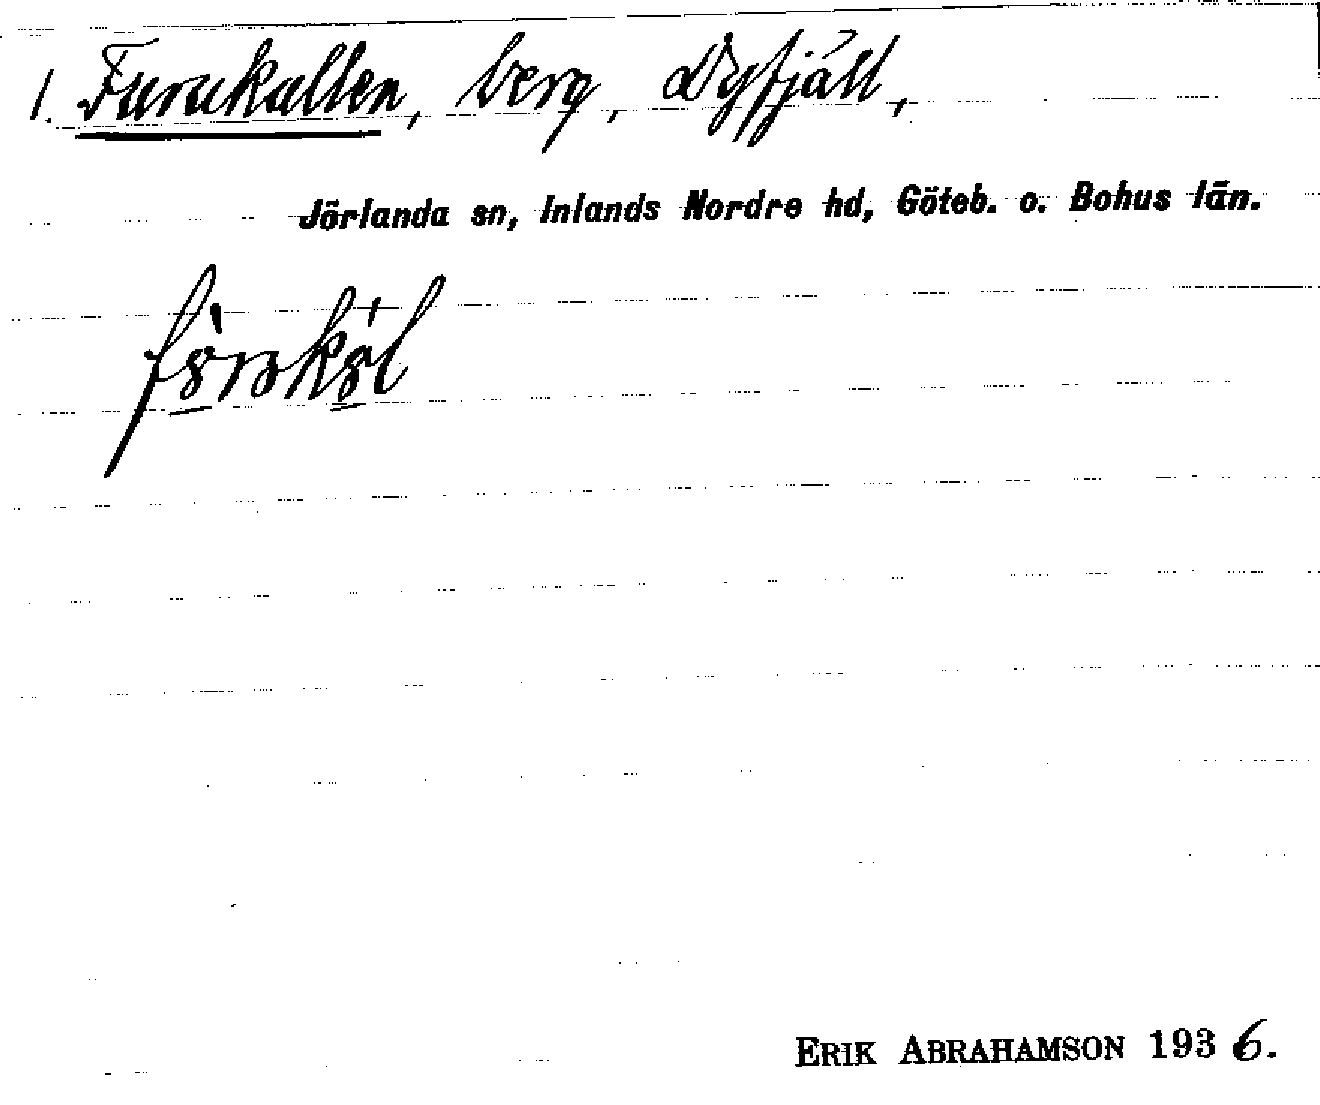 1. Furukullen, berg, Dyfjäll,
Jörlanda sn, Inlands Nordre hd, Göteb. o. Bohus län.
ERIK ABRAHAMSON 1936.